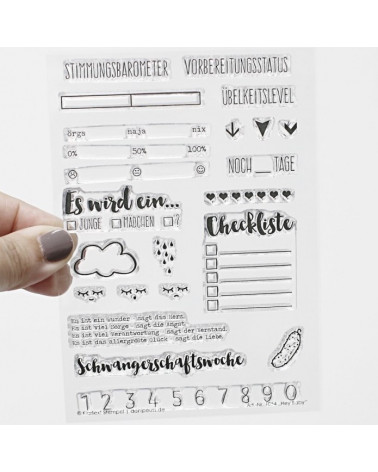 STIMMUNGSBAROMETER VORBEREITUNGSSTATUS
ÜBELKEITSLEVEL
örgs naja nix
0% 50% 100%
NOCH __ TAGE
Es wird ein...
JUNGE MÄDCHEN ?
Checkliste
Es ist ein wunder sagt das Herz.
Es ist viel Sorge sagt die Angst.
Es ist viel Verantwortung sagt der Verstand.
Es ist das allergrößte Glück sagt die Liebe.
Schwangerschaftswoche
1 2 3 4 5 6 7 8 9 0